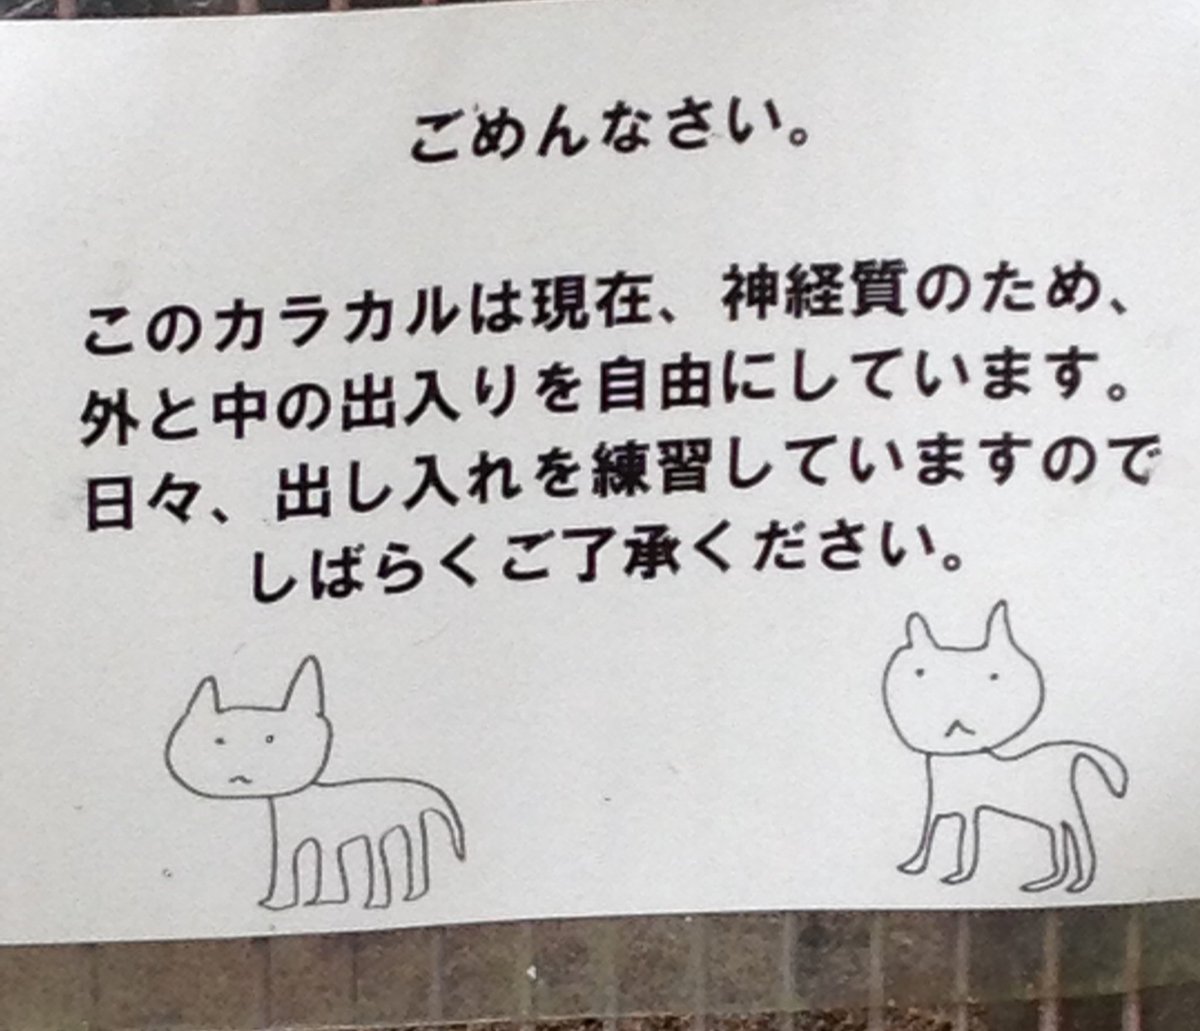 ごめんなさい。
このカラカルは現在、神経質のため、
外と中の出入りを自由にしています。
日々、出し入れを練習していますので
しばらくご了承ください。